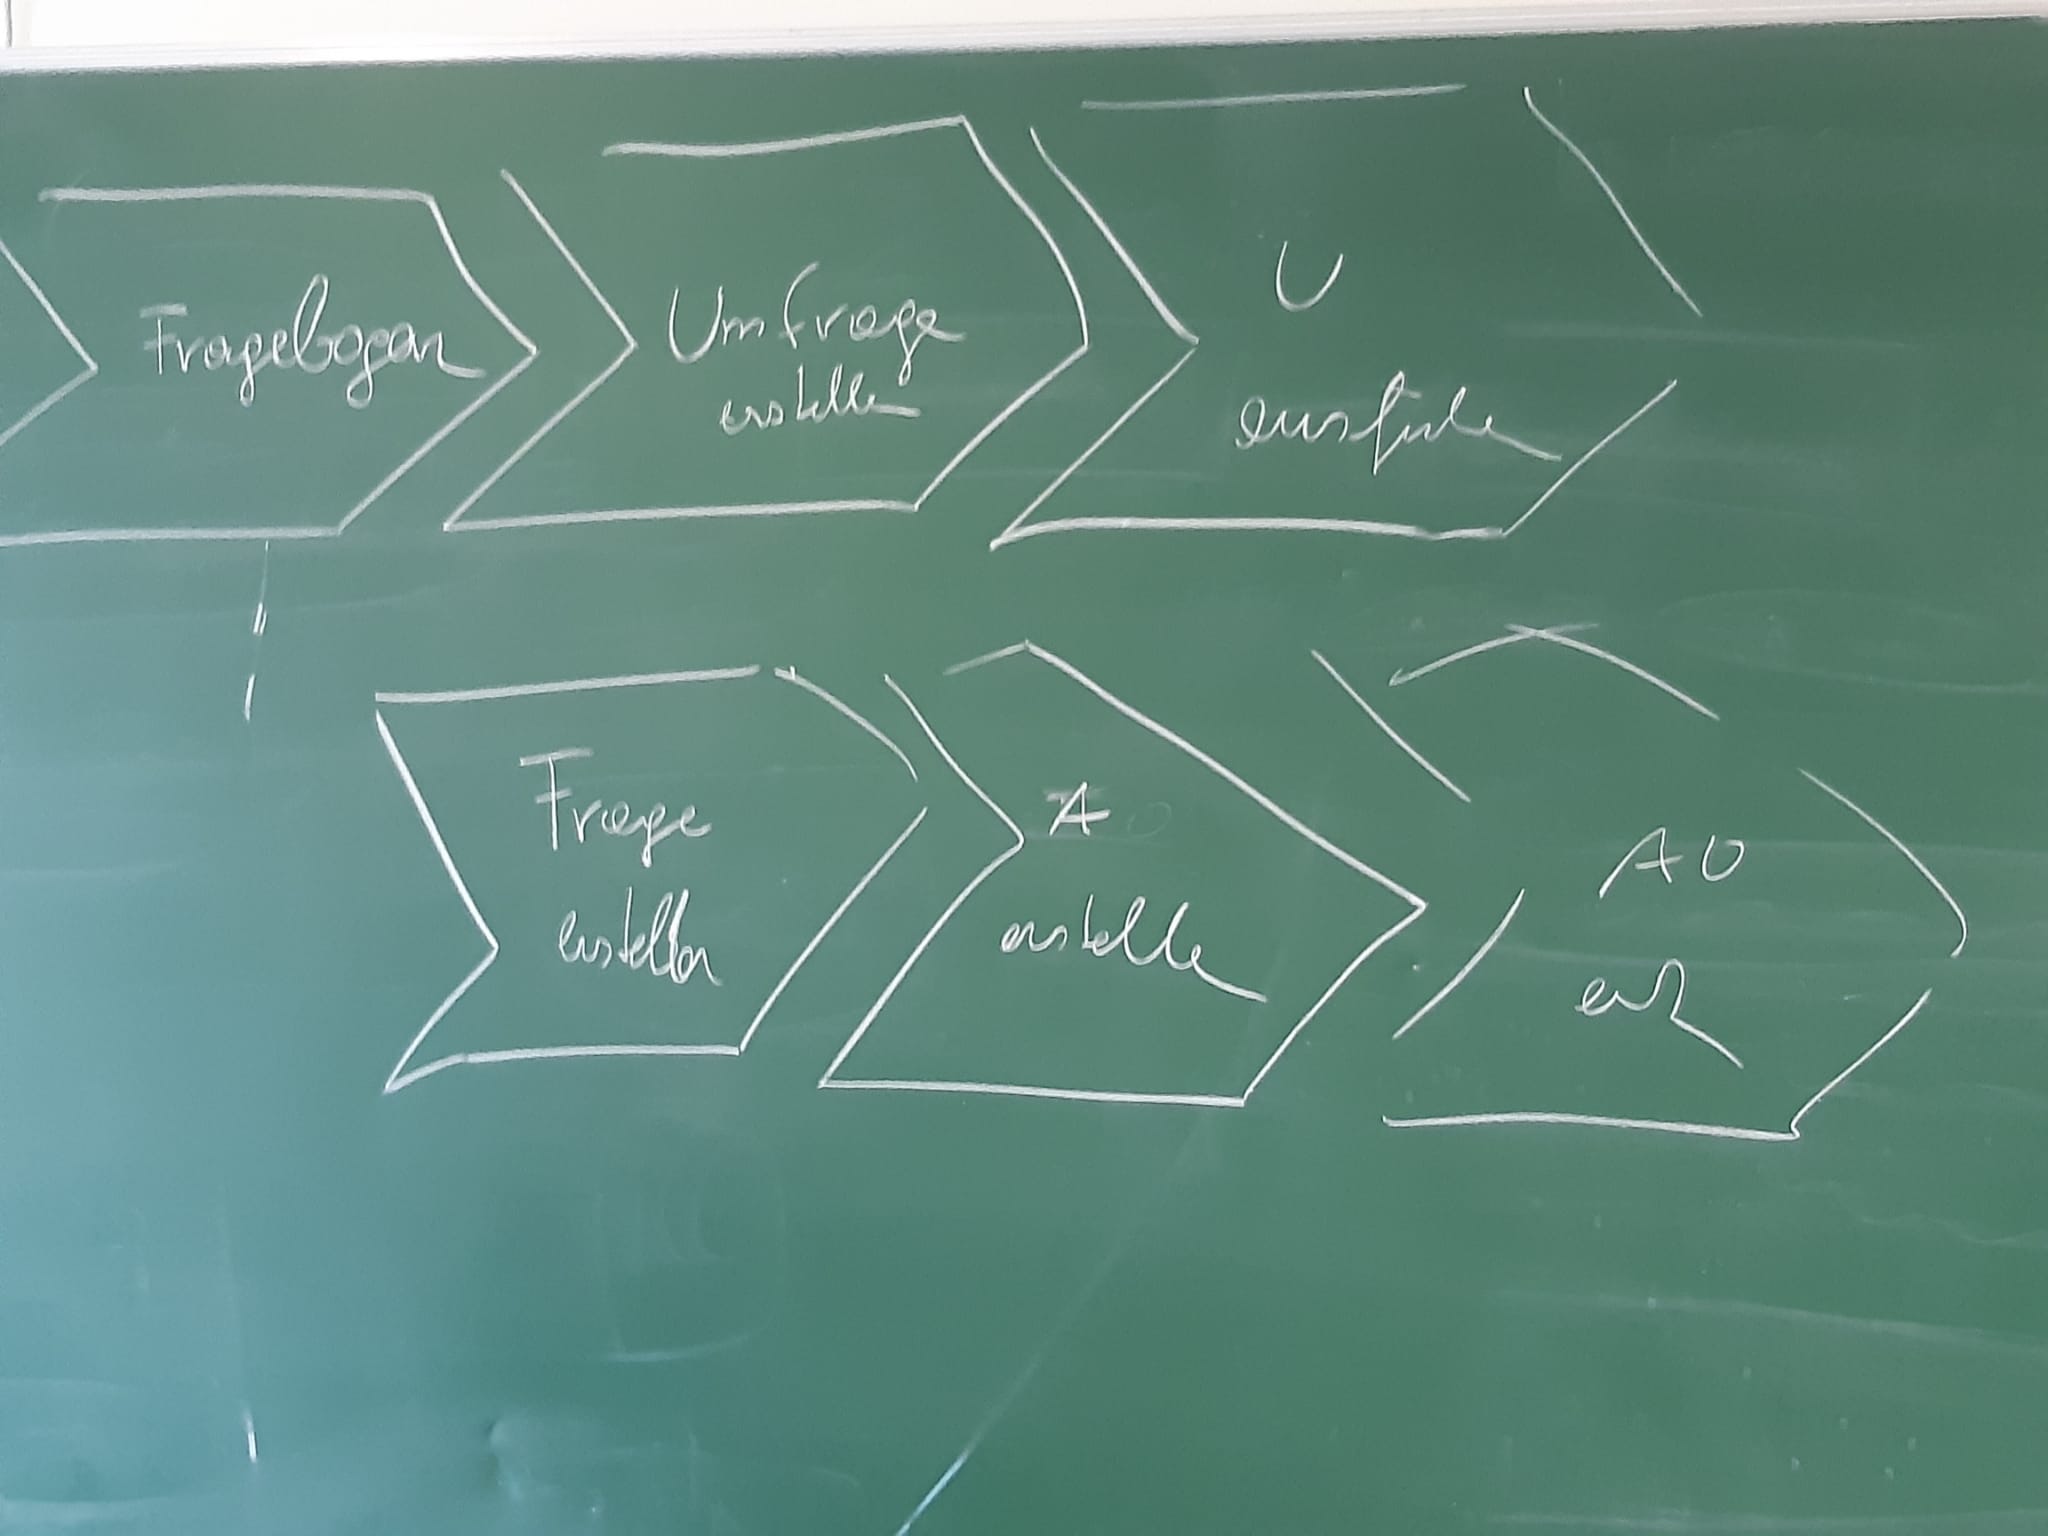 Fragebogen
Umfrage
erstelle
U
ausfüle
Frage
erstellen
A
erstelle
A O